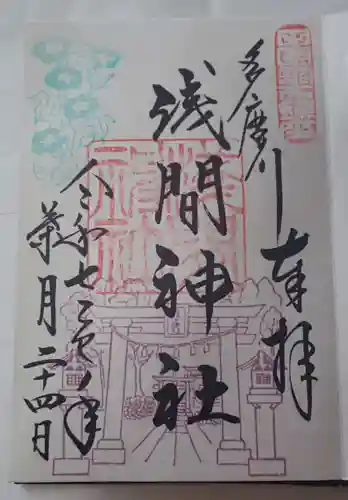 多摩川
奉拝
浅間神社
令和七乙巳ノ年
葉月二十四日